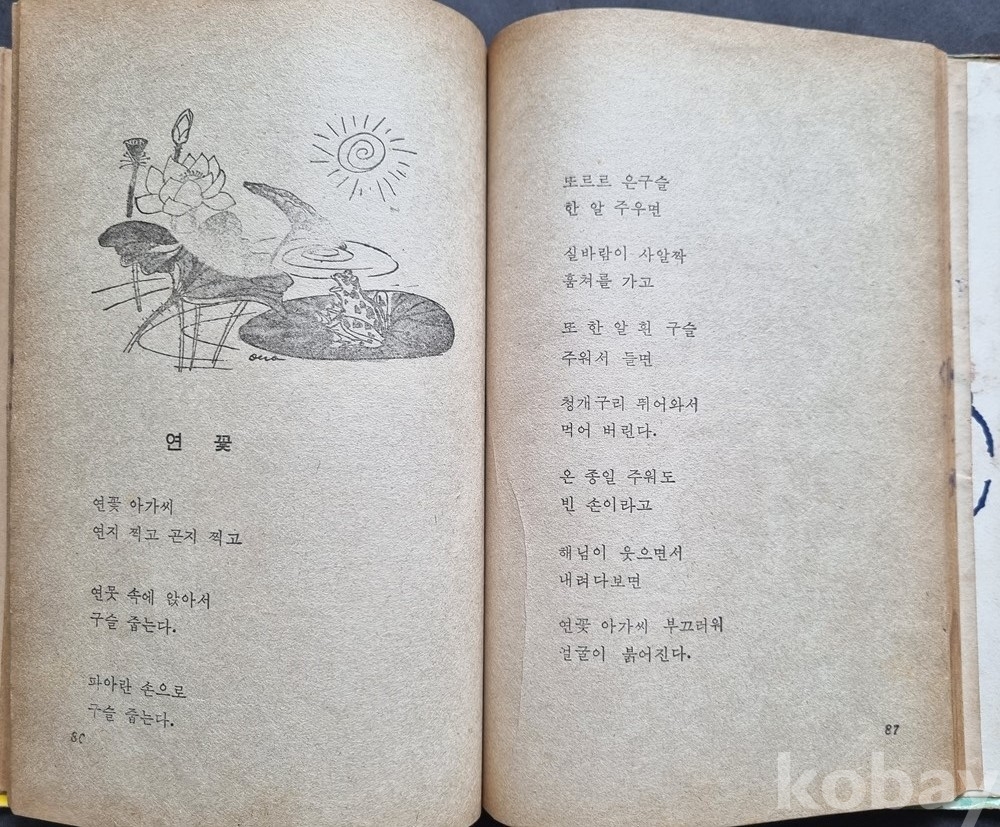 연 꽃
연꽃 아가씨
연지 찍고 곤지 찍고
연못 속에 앉아서
구슬 줍는다.
파아란 손으로
구슬 줍는다.
또르르 은구슬
한 알 주우면
실바람이 사알짝
훔쳐를 가고
또 한 알 흰 구슬
주워서 들면
청개구리 뛰어와서
먹어 버린다.
온 종일 주워도
빈 손이라고
해님이 웃으면서
내려다보면
연꽃 아가씨 부끄러워
얼굴이 붉어진다.
87
kobay